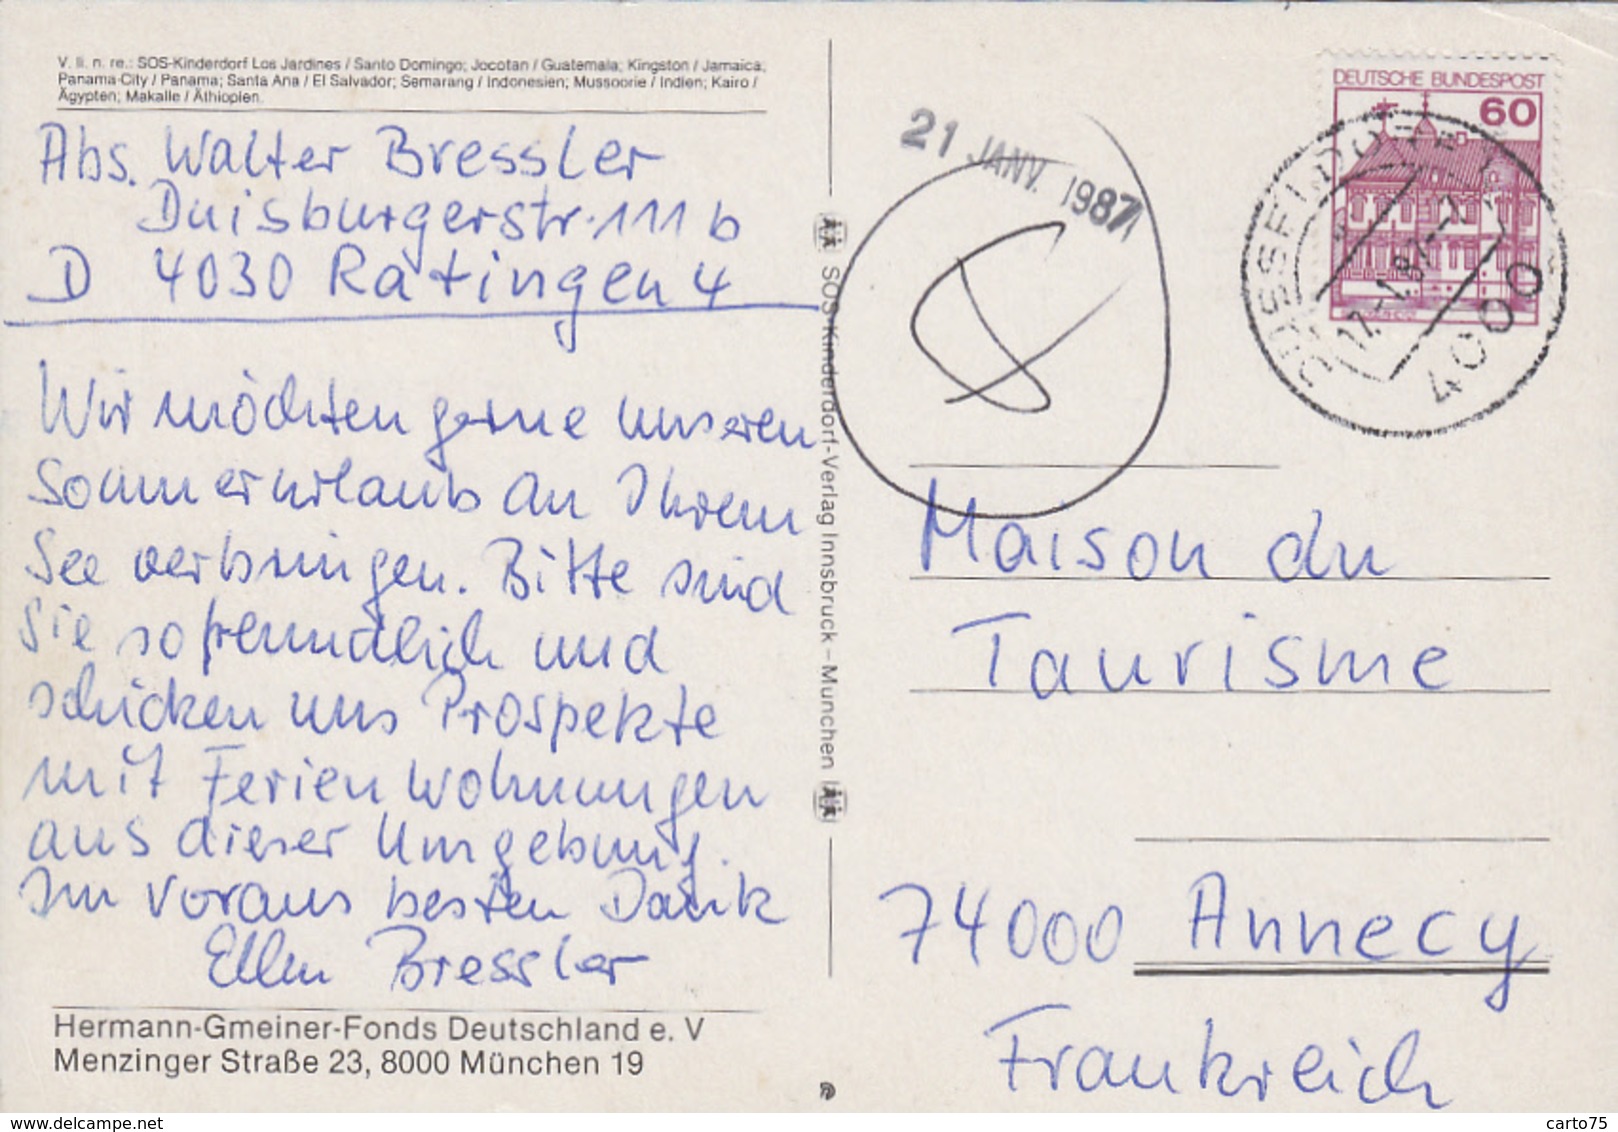 V. li. n. re.: SOS-Kinderdorf Los Jardines / Santo Domingo; Jocotan / Guatemala; Kingston / Jamaica;
Panama-City / Panama; Santa Ana / El Salvador; Semarang / Indonesien; Mussoorie / Indien; Kairo /
Ägypten; Makalle / Äthiopien.
Abs. Walter Bressler
Duisburgerstr. 111 b
D 4030 Ratingen 4
Wir möchten gerne unseren
Sommerurlaub an Ihrem
See verbringen. Bitte sind
Sie so freundlich und
schicken uns Prospekte
mit Ferienwohnungen
aus dieser Umgebung.
Im voraus besten Dank
Ellen Bressler
Hermann-Gmeiner-Fonds Deutschland e. V
Menzinger Straße 23, 8000 München 19
SOS-Kinderdorf-Verlag Innsbruck – München
21 JANV. 1987
DEUTSCHE BUNDESPOST
60
DÜSSELDORF
17.-1.87
4000
Maison du
Taurisme
74000 Annecy
Frankreich
www.delcampe.net
carto75